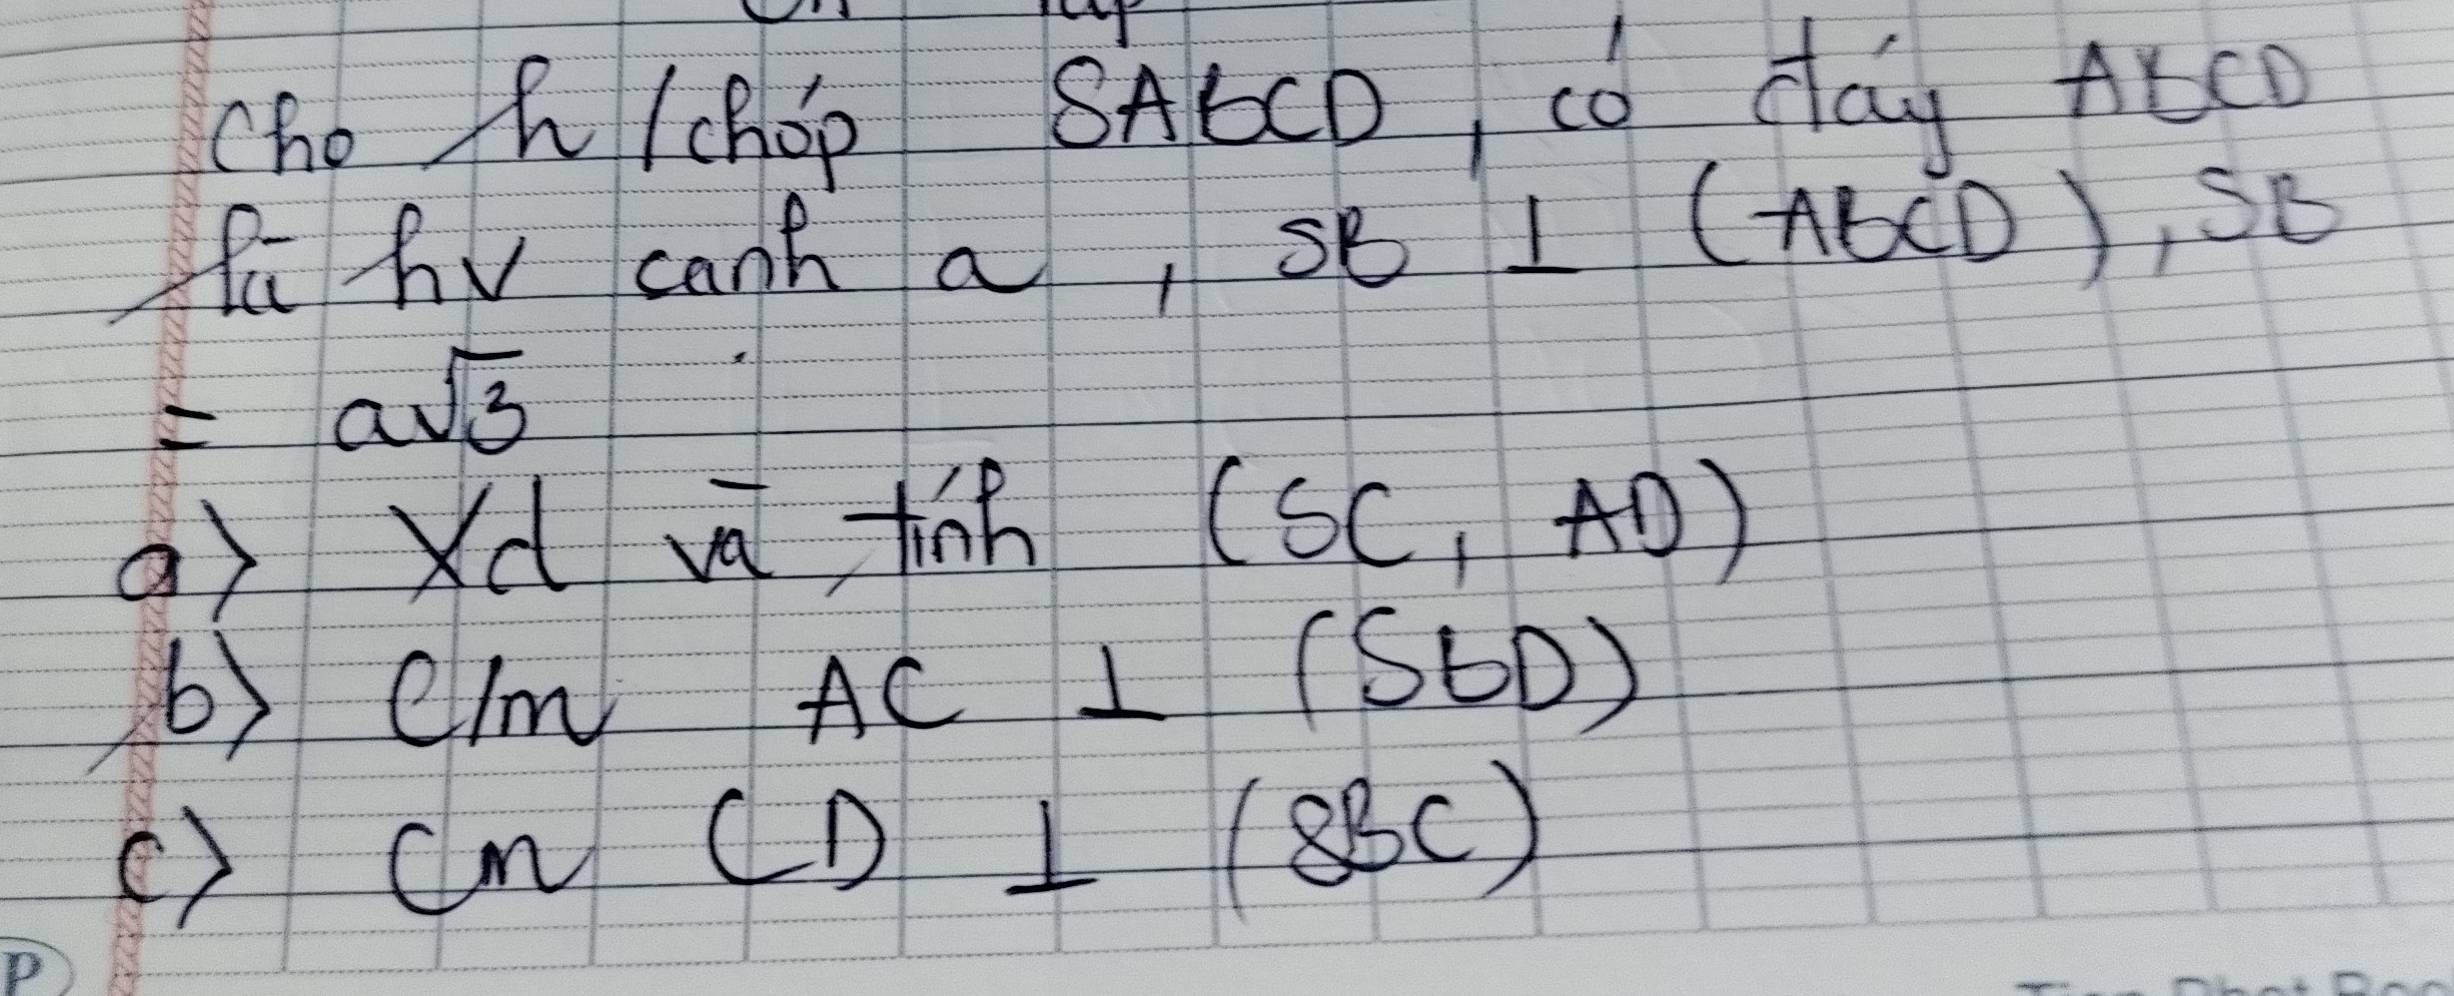 Cho h/chóp SABCD, có đáy ABCD
là hv cạnh a, SB ⊥ (ABCD), SB
= a√3
a> Xđ và tính (SC, AD)
b> C/m AC ⊥ (SBD)
c> Cm CD ⊥ (SBC)
P